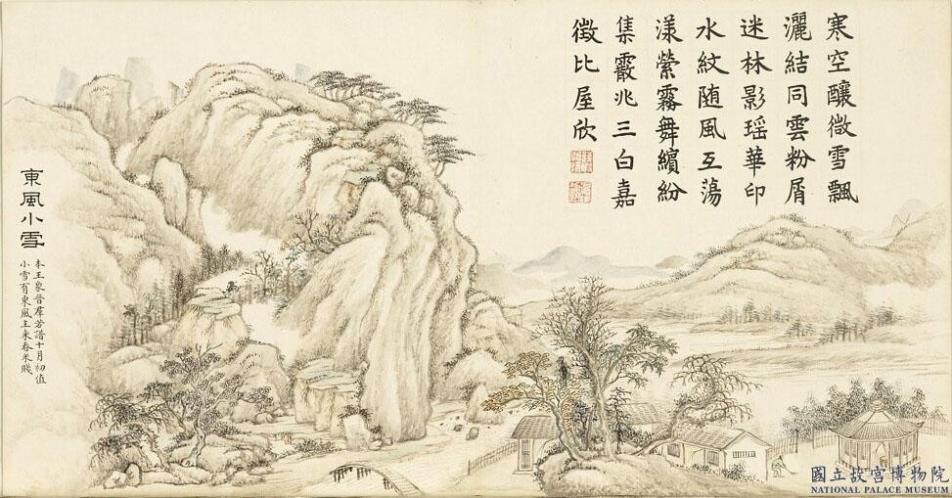 寒空釀微雪飄
灑結同雲粉屑
迷林影瑶華印
水紋随風互蕩
漾縈霧舞繽紛
集霰兆三白嘉
徵比屋欣
東風小雪
本王象晉群芳譜十月初值
小雪有東風主来春米賤
國立故宮博物院
NATIONAL PALACE MUSEUM